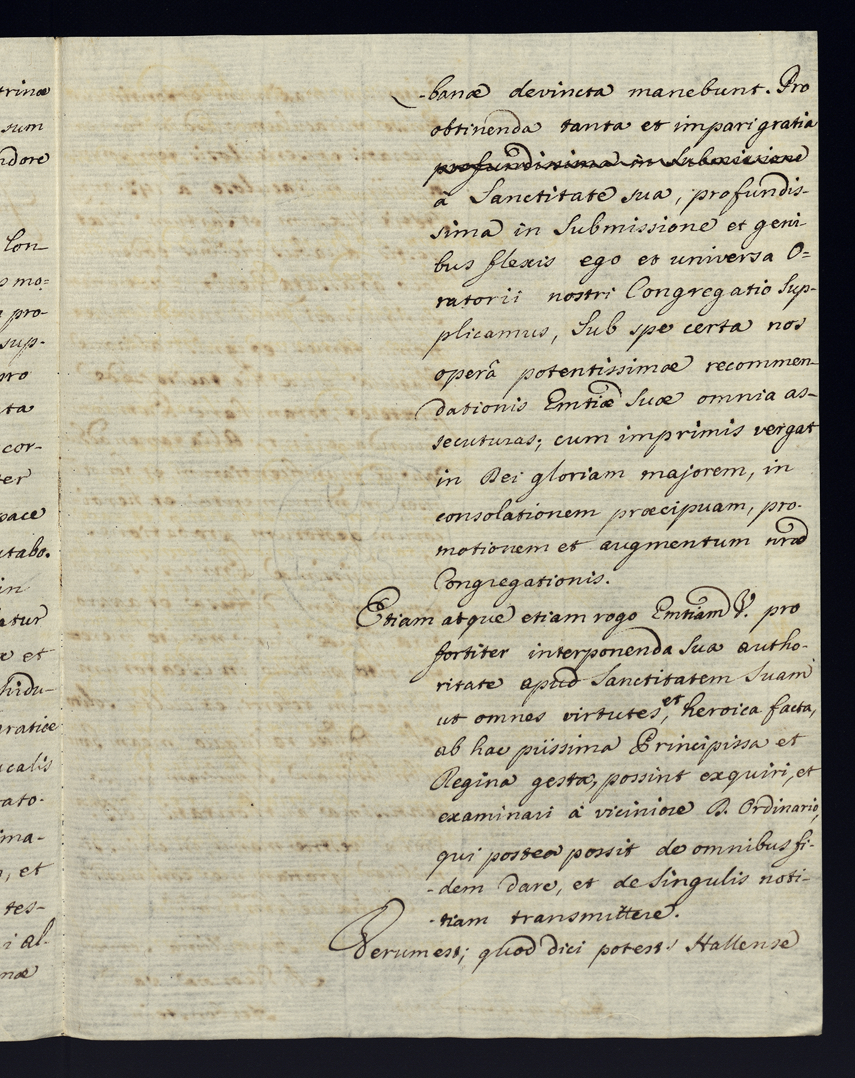 trinæ
sum
ndore
Lon-
s mo=
pro-
sup-
pro
ta
cor-
ter
pace
utabo.
in
atur
æ et
hidu-
gratiæ
icalis
rato-
ima-
, et
tes-
i al-
næ
-banæ devincta manebunt. Pro
obtinenda tanta et impari gratia
profundissima in Submissione
à Sanctitate sua, profundis-
sima in Submissione et geni-
bus flexis ego et universa O=
ratorii nostri Congregatio Sup-
plicamus, Sub spe certa nos
operâ potentissimæ recommen-
dationis Emtiæ Suæ omnia as-
secuturas; cum imprimis vergat
in Dei gloriam majorem, in
consolationem præcipuam, pro-
motionem et augmentum nræ
Congregationis.
Etiam atque etiam rogo Emtiam V. pro
fortiter interponenda Sua autho-
ritate apud Sanctitatem Suam
ut omnes virtutes, et heroica facta,
ab hac piissima Principissa et
Regina gesta, possint exquiri, et
examinari à viciniore D. Ordinario,
qui postea possit de omnibus fi-
-dem dare, et de Singulis noti-
-tiam transmittere.
Verum est; quod dici potest Hallense